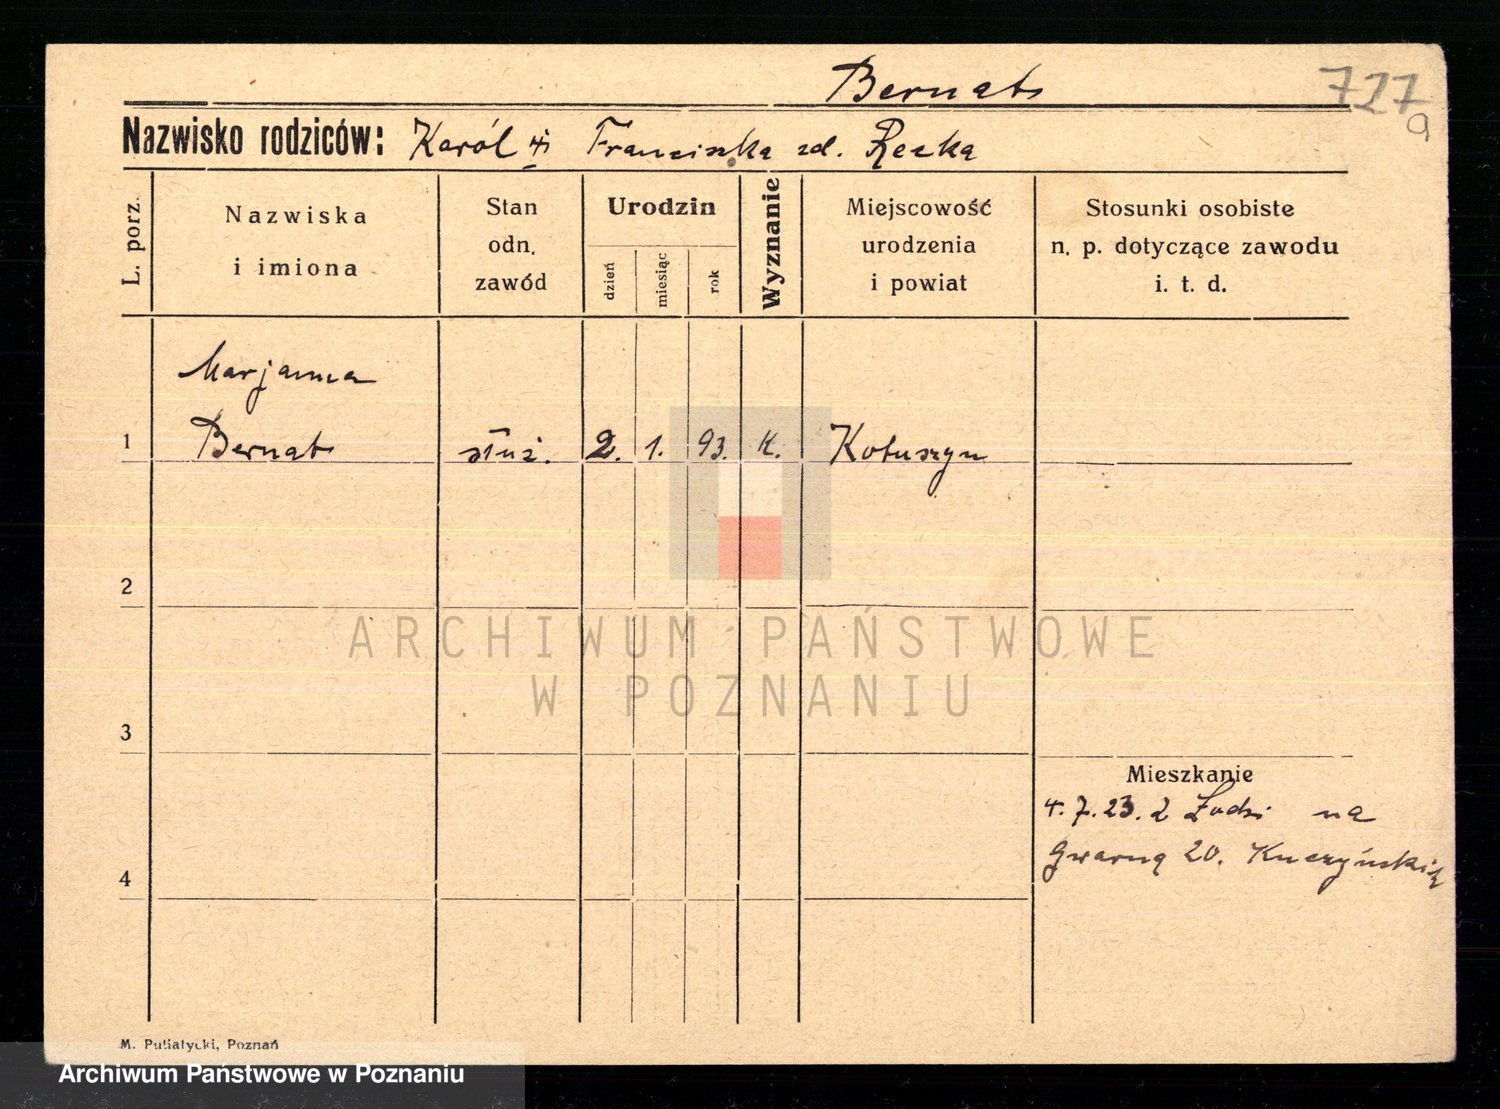 Bernat
727
a
Nazwisko rodziców: Karól i Franciszka zd. Recka
L. porz.
Nazwiska
i imiona
Stan
odn.
zawód
Urodzin
dzień
miesiąc
rok
Wyznanie
Miejscowość
urodzenia
i powiat
Stosunki osobiste
n. p. dotyczące zawodu
i. t. d.
Marjanna
1 Bernat służ. 2. 1. 93. K. Kotuszyn
2
ARCHIWUM PAŃSTWOWE
W POZNANIU
3
Mieszkanie
4. 7. 23. z Łodzi na
Gwarną 20. Kuczyński
4
M. Putiatycki, Poznań
Archiwum Państwowe w Poznaniu